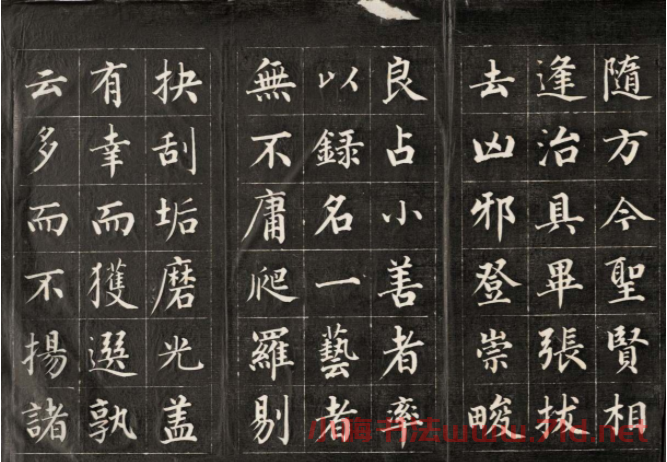 隨方今聖賢相
逢治具畢張拔
去凶邪登崇畯
良占小善者率
以錄名一藝者
無不庸爬羅剔
抉刮垢磨光盖
有幸而獲選孰
云多而不揚諸